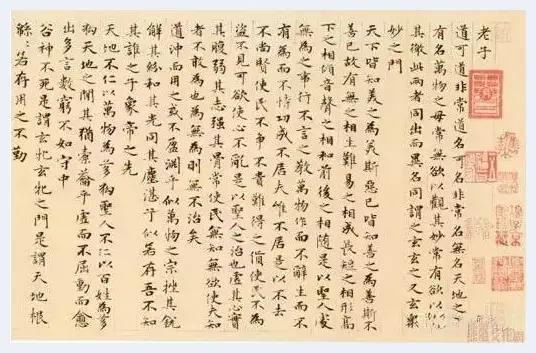 老子
道可道非常道名可名非常名無名天地之
有名萬物之母常無欲以觀其妙常有欲以
其徼此兩者同出而異名同謂之玄玄之又玄衆
妙之門
天下皆知美之為美斯惡已皆知善之為善斯不
善已故有無之相生難易之相成長短之相形高
下之相傾音聲之相和前後之相隨是以聖人處
無為之事行不言之教萬物作而不辭生而不
有為而不恃功成不居夫唯不居是以不去
不尚賢使民不爭不貴難得之貨使民不為
盜不見可欲使心不亂是以聖人之治也虛其心實
其腹弱其志强其骨常使民無知無欲使夫知
者不敢為也為無為則無不治矣
道沖而用之或不盈淵乎似萬物之宗挫其銳
解其紛和其光同其塵湛兮似若存吾不知
其誰之子象帝之先
天地不仁以萬物為芻狗聖人不仁以百姓為芻
狗天地之間其猶橐籥乎虛而不屈動而愈
出多言數窮不如守中
谷神不死是謂玄牝玄牝之門是謂天地根
緜〻若存用之不勤